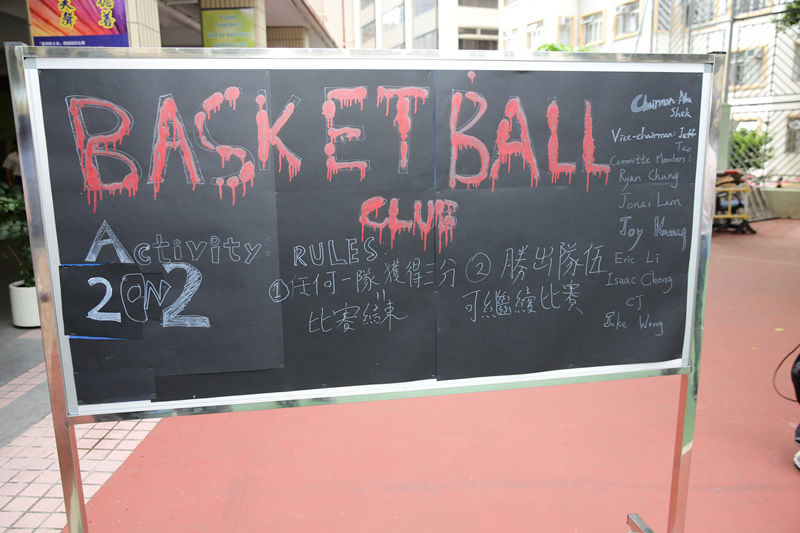 BASKETBALL
CLUB
Activity:
2 ON 2
RULES.
①任何一隊獲得三分
比賽結束
②勝出隊伍
可繼續比賽
Chairman: Alu
Shek
Vice-chairman: Jeff
Tao
Committe Members:
Ryan Chung
Jonas Lam
Joy
Eric Li
Isaac Chong
CJ
Wong